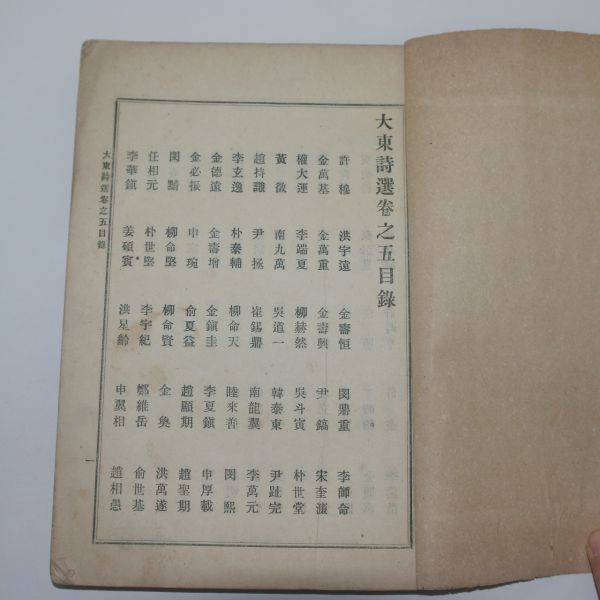 大東詩選卷之五目錄
許穆 洪宇遠 金壽恒 閔鼎重 李師命
金萬基 金萬重 金壽興 尹鑴 宋奎濂
權大運 李端夏 柳赫然 吳斗寅 朴世堂
黃徵 南九萬 吳道一 韓泰東 尹趾完
趙持謙 尹拯 崔錫鼎 南龍翼 李萬元
李玄逸 朴泰輔 柳命天 睦來善 閔熙
金德遠 金壽增 金鎭圭 李夏鎭 申厚載
金必振 申琓 俞夏益 趙顯期 趙聖期
閔黯 柳命堅 柳命賢 金奐 洪萬遂
任相元 朴世堅 李宇紀 鄭維岳 俞世基
李華鎭 姜碩賓 洪星齡 申翼相 趙相愚
大東詩選卷之五目錄